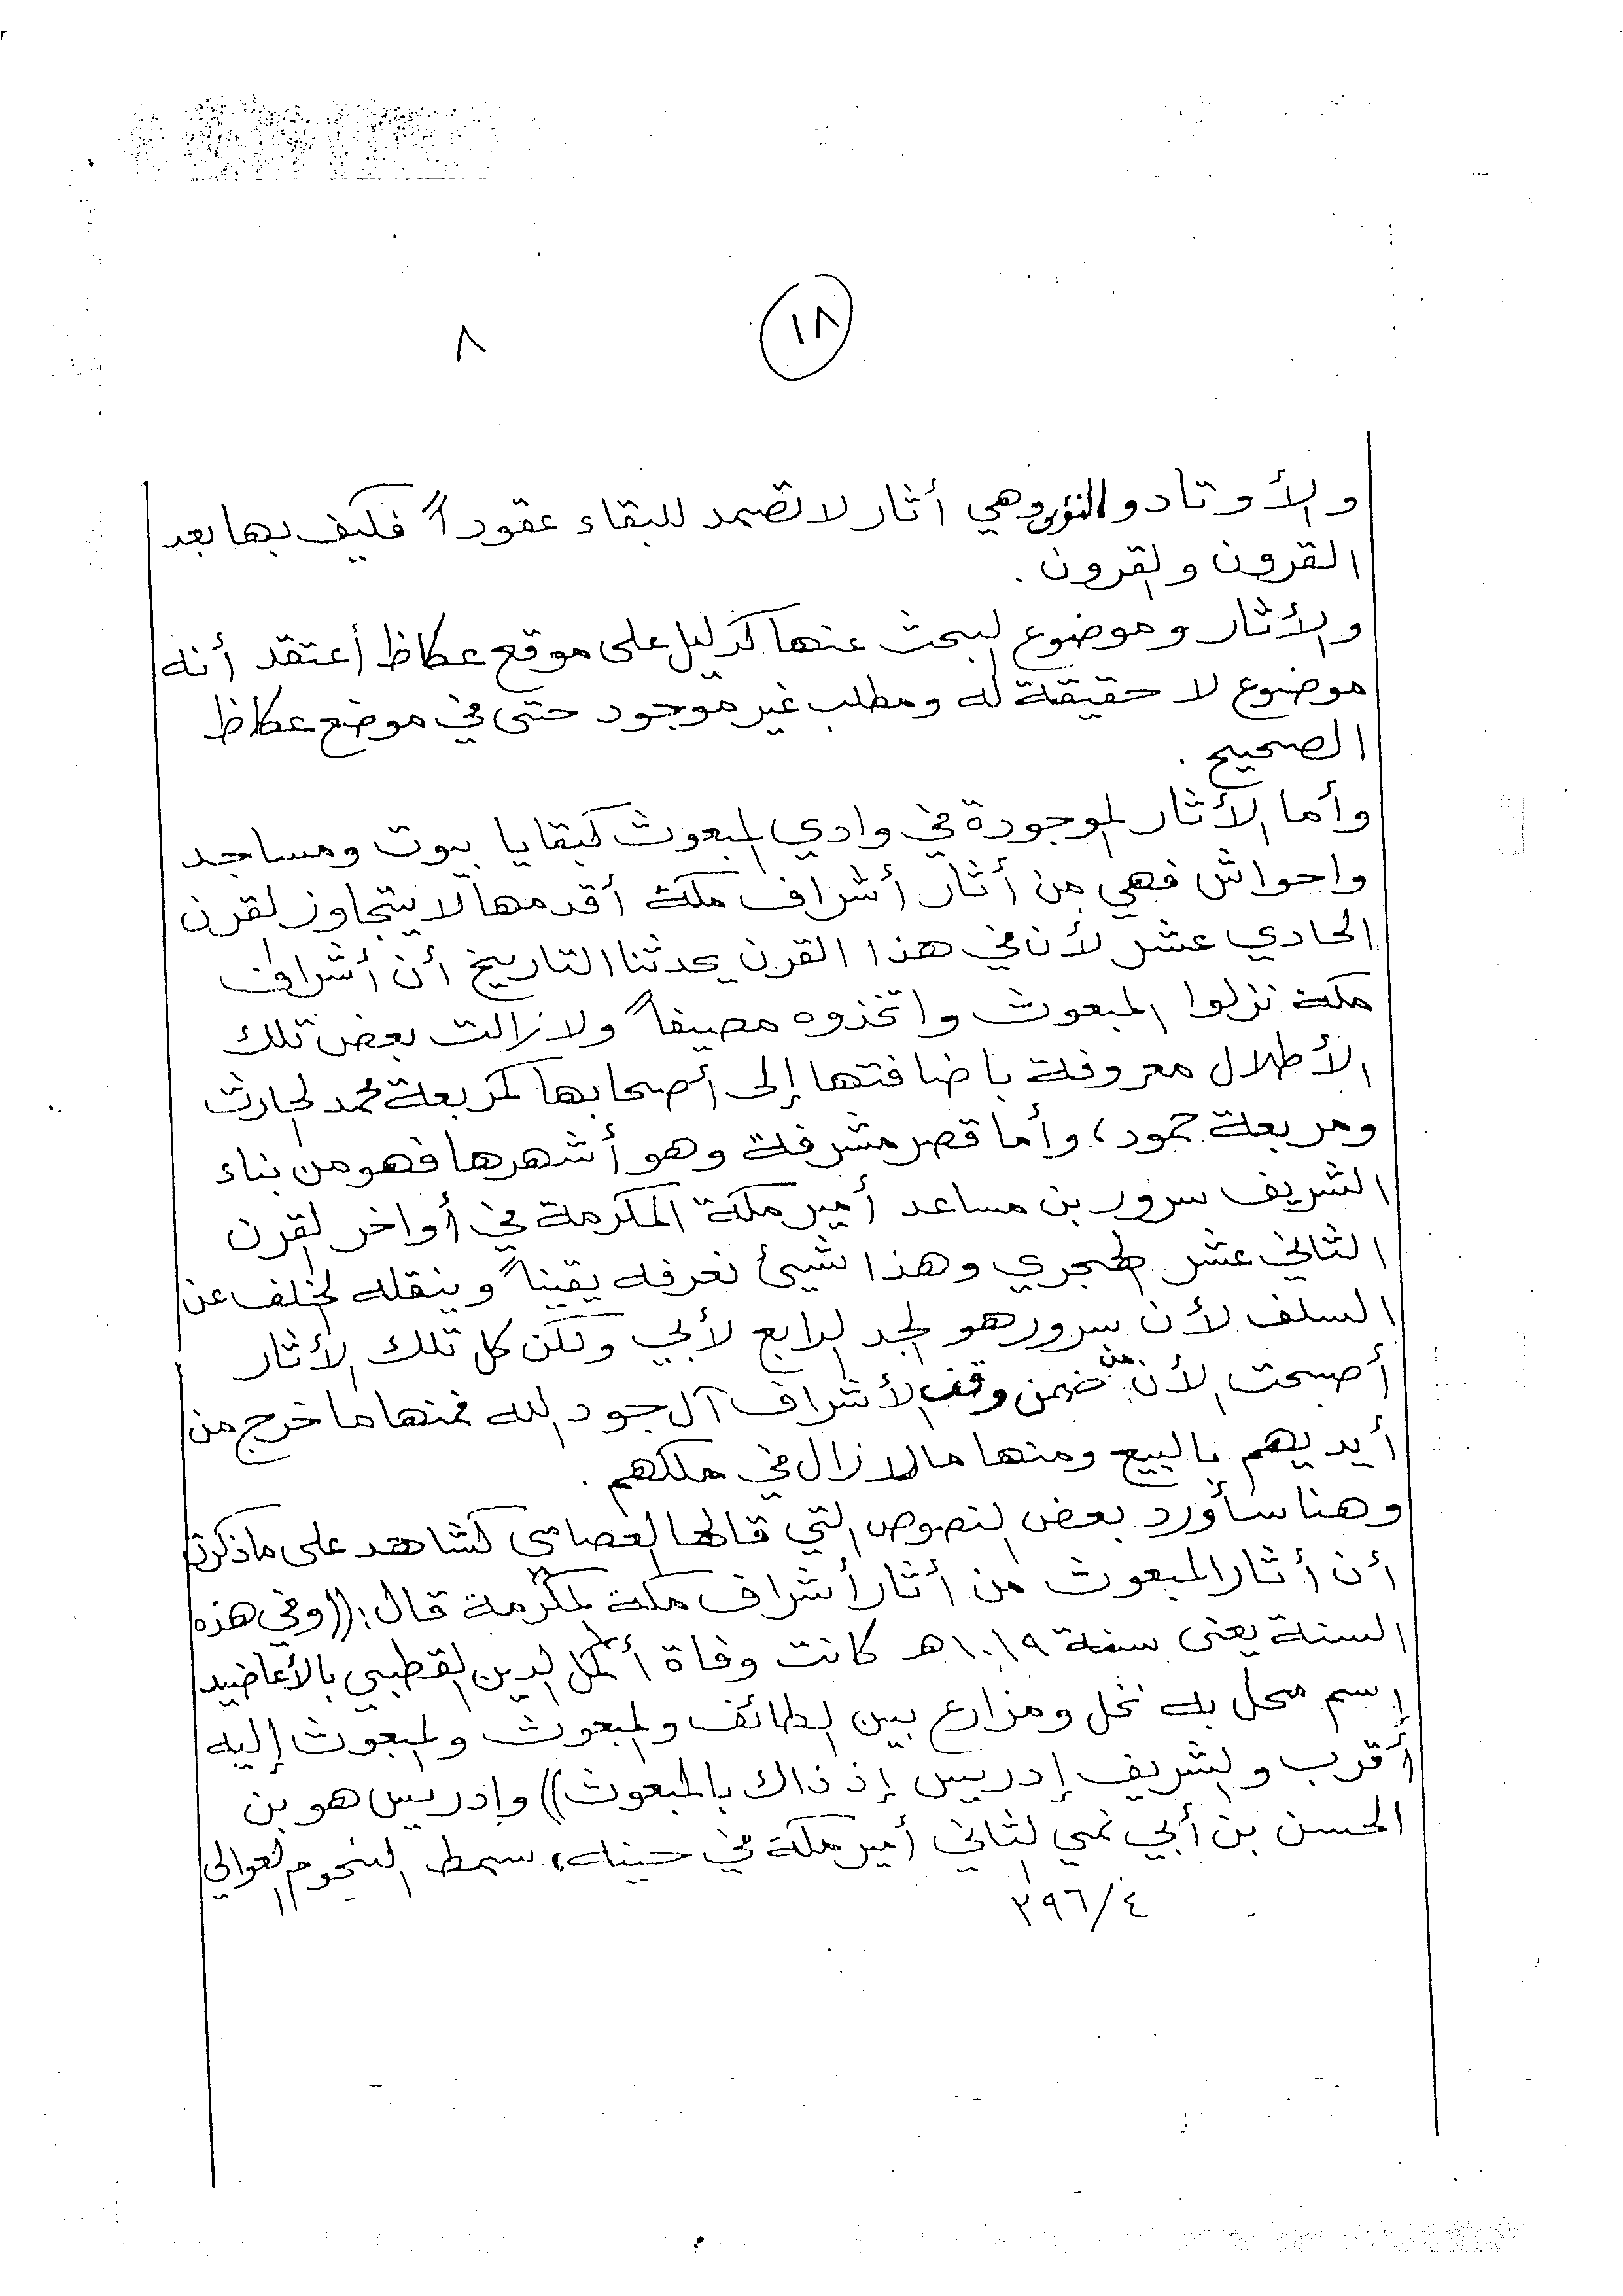 ١٨
٨
والأوتاد والنؤى وهي أثار لا تصمد للبقاء عقوداً فكيف بها بعد
القرون والقرون .
والأثار وموضوع البحث عنها كدليل على موقع عكاظ أعتقد أنه
موضوع لا حقيقة له ومطلب غير موجود حتى في موضع عكاظ
الصحيح .
وأما الأثار الموجودة في وادي المبعوث كبقايا بيوت ومساجد
واحواش فهي من أثار أشراف مكة أقدمها لا يتجاوز القرن
الحادي عشر لأن في هذا القرن يحدثنا التاريخ أن أشراف
مكة نزلوا المبعوث واتخذوه مصيفاً ولا زالت بعض تلك
الأطلال معروفة باضافتها إلى أصحابها كمربعة محمد الحارث
ومربعة حمود، وأما قصر مشرفة وهو أشهرها فهو من بناء
الشريف سرور بن مساعد أمير مكة المكرمة في أواخر القرن
الثاني عشر الهجري وهذا شيئ نعرفه يقيناً وينقله الخلف عن
السلف لأن سرور هو الجد الرابع لأبي ولكن كل تلك الأثار
أصبحت الأن من ضمن وقف الأشراف آل جود الله فمنها ما خرج من
أيديهم بالبيع ومنها ما لا زال في ملكهم .
وهنا سأورد بعض النصوص التي قالها العصامى كشاهد على ماذكرت
أن أثار المبعوث من أثار أشراف مكة المكرمة قال: ((وفي هذه
السنة يعنى سنة ١٠١٩هـ كانت وفاة أكمل الدين القطبي بالأعاضيد
إسم محل به نخل ومزارع بين الطائف والمبعوث والمبعوث إليه
أقرب والشريف إدريس إذ ذاك بالمبعوث)) وإدريس هو بن
الحسن بن أبي نمي الثاني أمير مكة في حينه، سمط النجوم العوالي
٣٩٦/٤